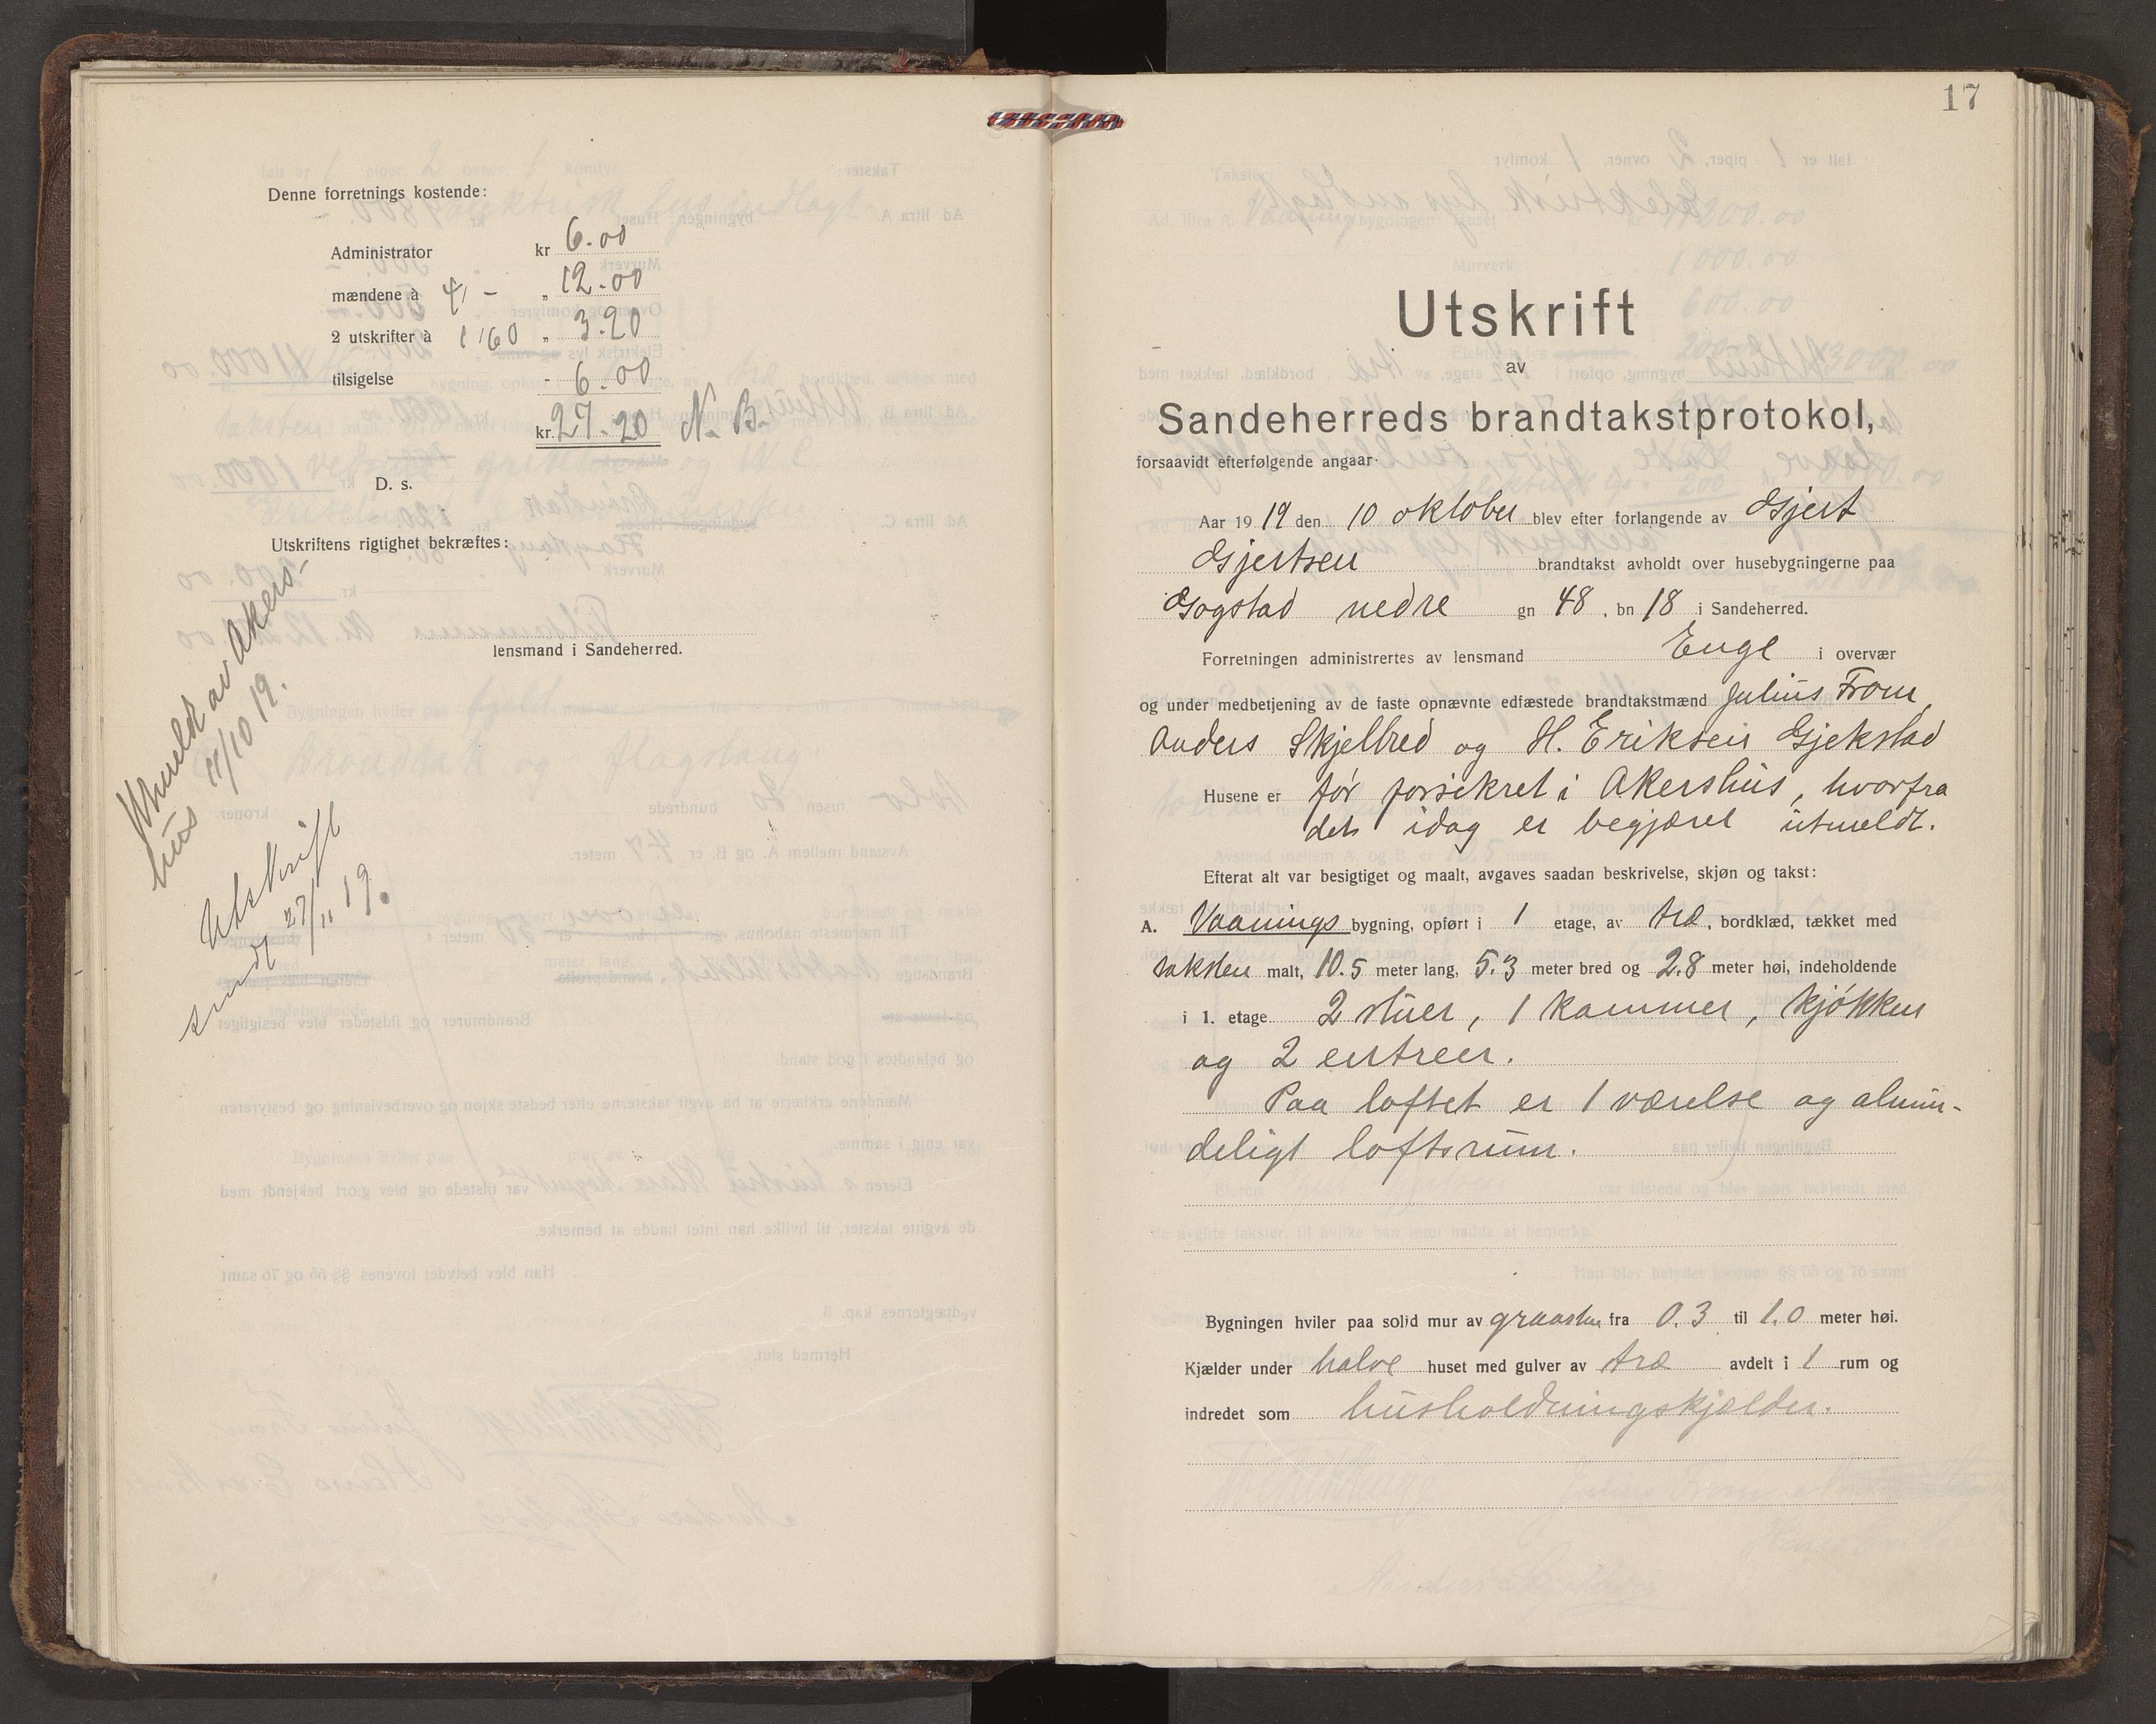 Denne forretnings kostende:
Administrator kr 6.00
mændene à 4,- „ 12.00
2 utskrifter à 1,60 „ 3.20
tilsigelse - 6.00
kr. 27.20 N. B.
D. s.
Utskriftens rigtighet bekræftes:
lensmand i Sandeherred.
Utmeldt av Akers-
hus 11/10 19.
Utskrift
sendt 27/11 19.
17
Utskrift
av
Sandeherreds brandtakstprotokol,
forsaavidt efterfølgende angaar.
Aar 1919 den 10 oktober blev efter forlangende av Gjert
Gjertsen brandtakst avholdt over husebygningerne paa
Gogstad nedre gn 48. bn 18 i Sandeherred.
Forretningen administrertes av lensmand Enge i overvær
og under medbetjening av de faste opnævnte edfæstede brandtakstmænd Julius From,
Anders Skjelbred og H. Eriksen Gjekstad
Husene er før forsikret i Akershus, hvorfra
det idag er begjæret utmeldt.
Efterat alt var besigtiget og maalt, avgaves saadan beskrivelse, skjøn og takst:
A. Vaanings bygning, opført i 1 etage, av træ, bordklæd, tækket med
taksten malt, 10.5 meter lang, 5.3 meter bred og 2.8 meter høi, indeholdende
i 1. etage 2 stuer, 1 kammer, kjøkken
og 2 entreer.
Paa loftet er 1 værelse og almin-
deligt loftsrum.
Bygningen hviler paa solid mur av graasten fra 0.3 til 1.0 meter høi.
Kjælder under halve huset med gulver av træ avdelt i 1 rum og
indredet som husholdningskjælder.